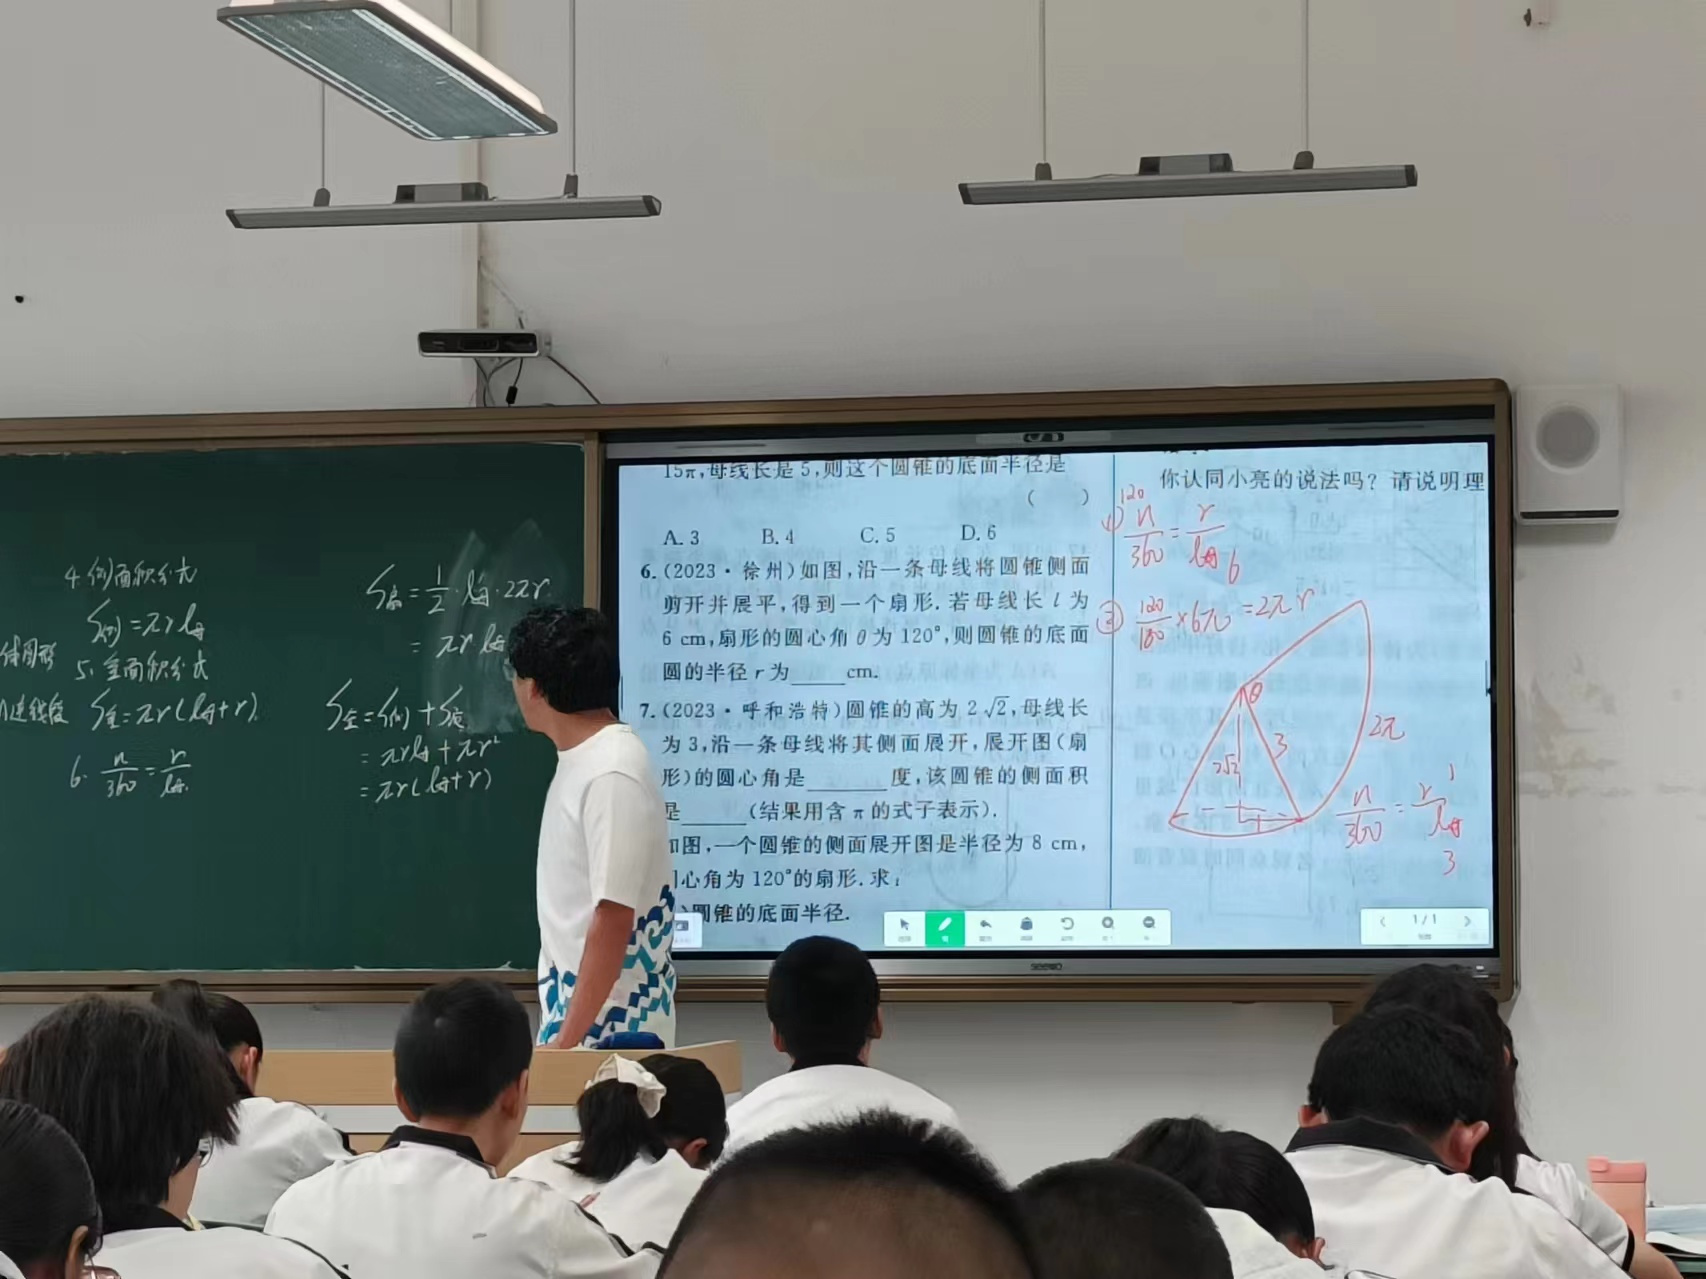 4. 侧面积公式
S侧=πrl母
5. 全面积公式
S全=πr(l母+r).
6. n/360=r/l母.
=1/2·l母·2πr
=πrl母
S全=S侧+S底
=πrl母+πr²
=πr(l母+r)
15π,母线长是5,则这个圆锥的底面半径是
( )
A. 3 B. 4 C. 5 D. 6
6.(2023·徐州)如图,沿一条母线将圆锥侧面
剪开并展平,得到一个扇形.若母线长 l 为
6 cm,扇形的圆心角 θ 为 120°,则圆锥的底面
圆的半径 r 为____cm.
7.(2023·呼和浩特)圆锥的高为 2√2,母线长
为 3,沿一条母线将其侧面展开,展开图(扇
形)的圆心角是____度,该圆锥的侧面积
是____(结果用含 π 的式子表示).
如图,一个圆锥的侧面展开图是半径为 8 cm,
心角为 120°的扇形.求:
圆锥的底面半径.
你认同小亮的说法吗？请说明理
120
① n/360=r/l母 6
② 120/180×6π=2πr
θ
2√2
3
2π
1
n/360=r/l母
3
1/1
seewo